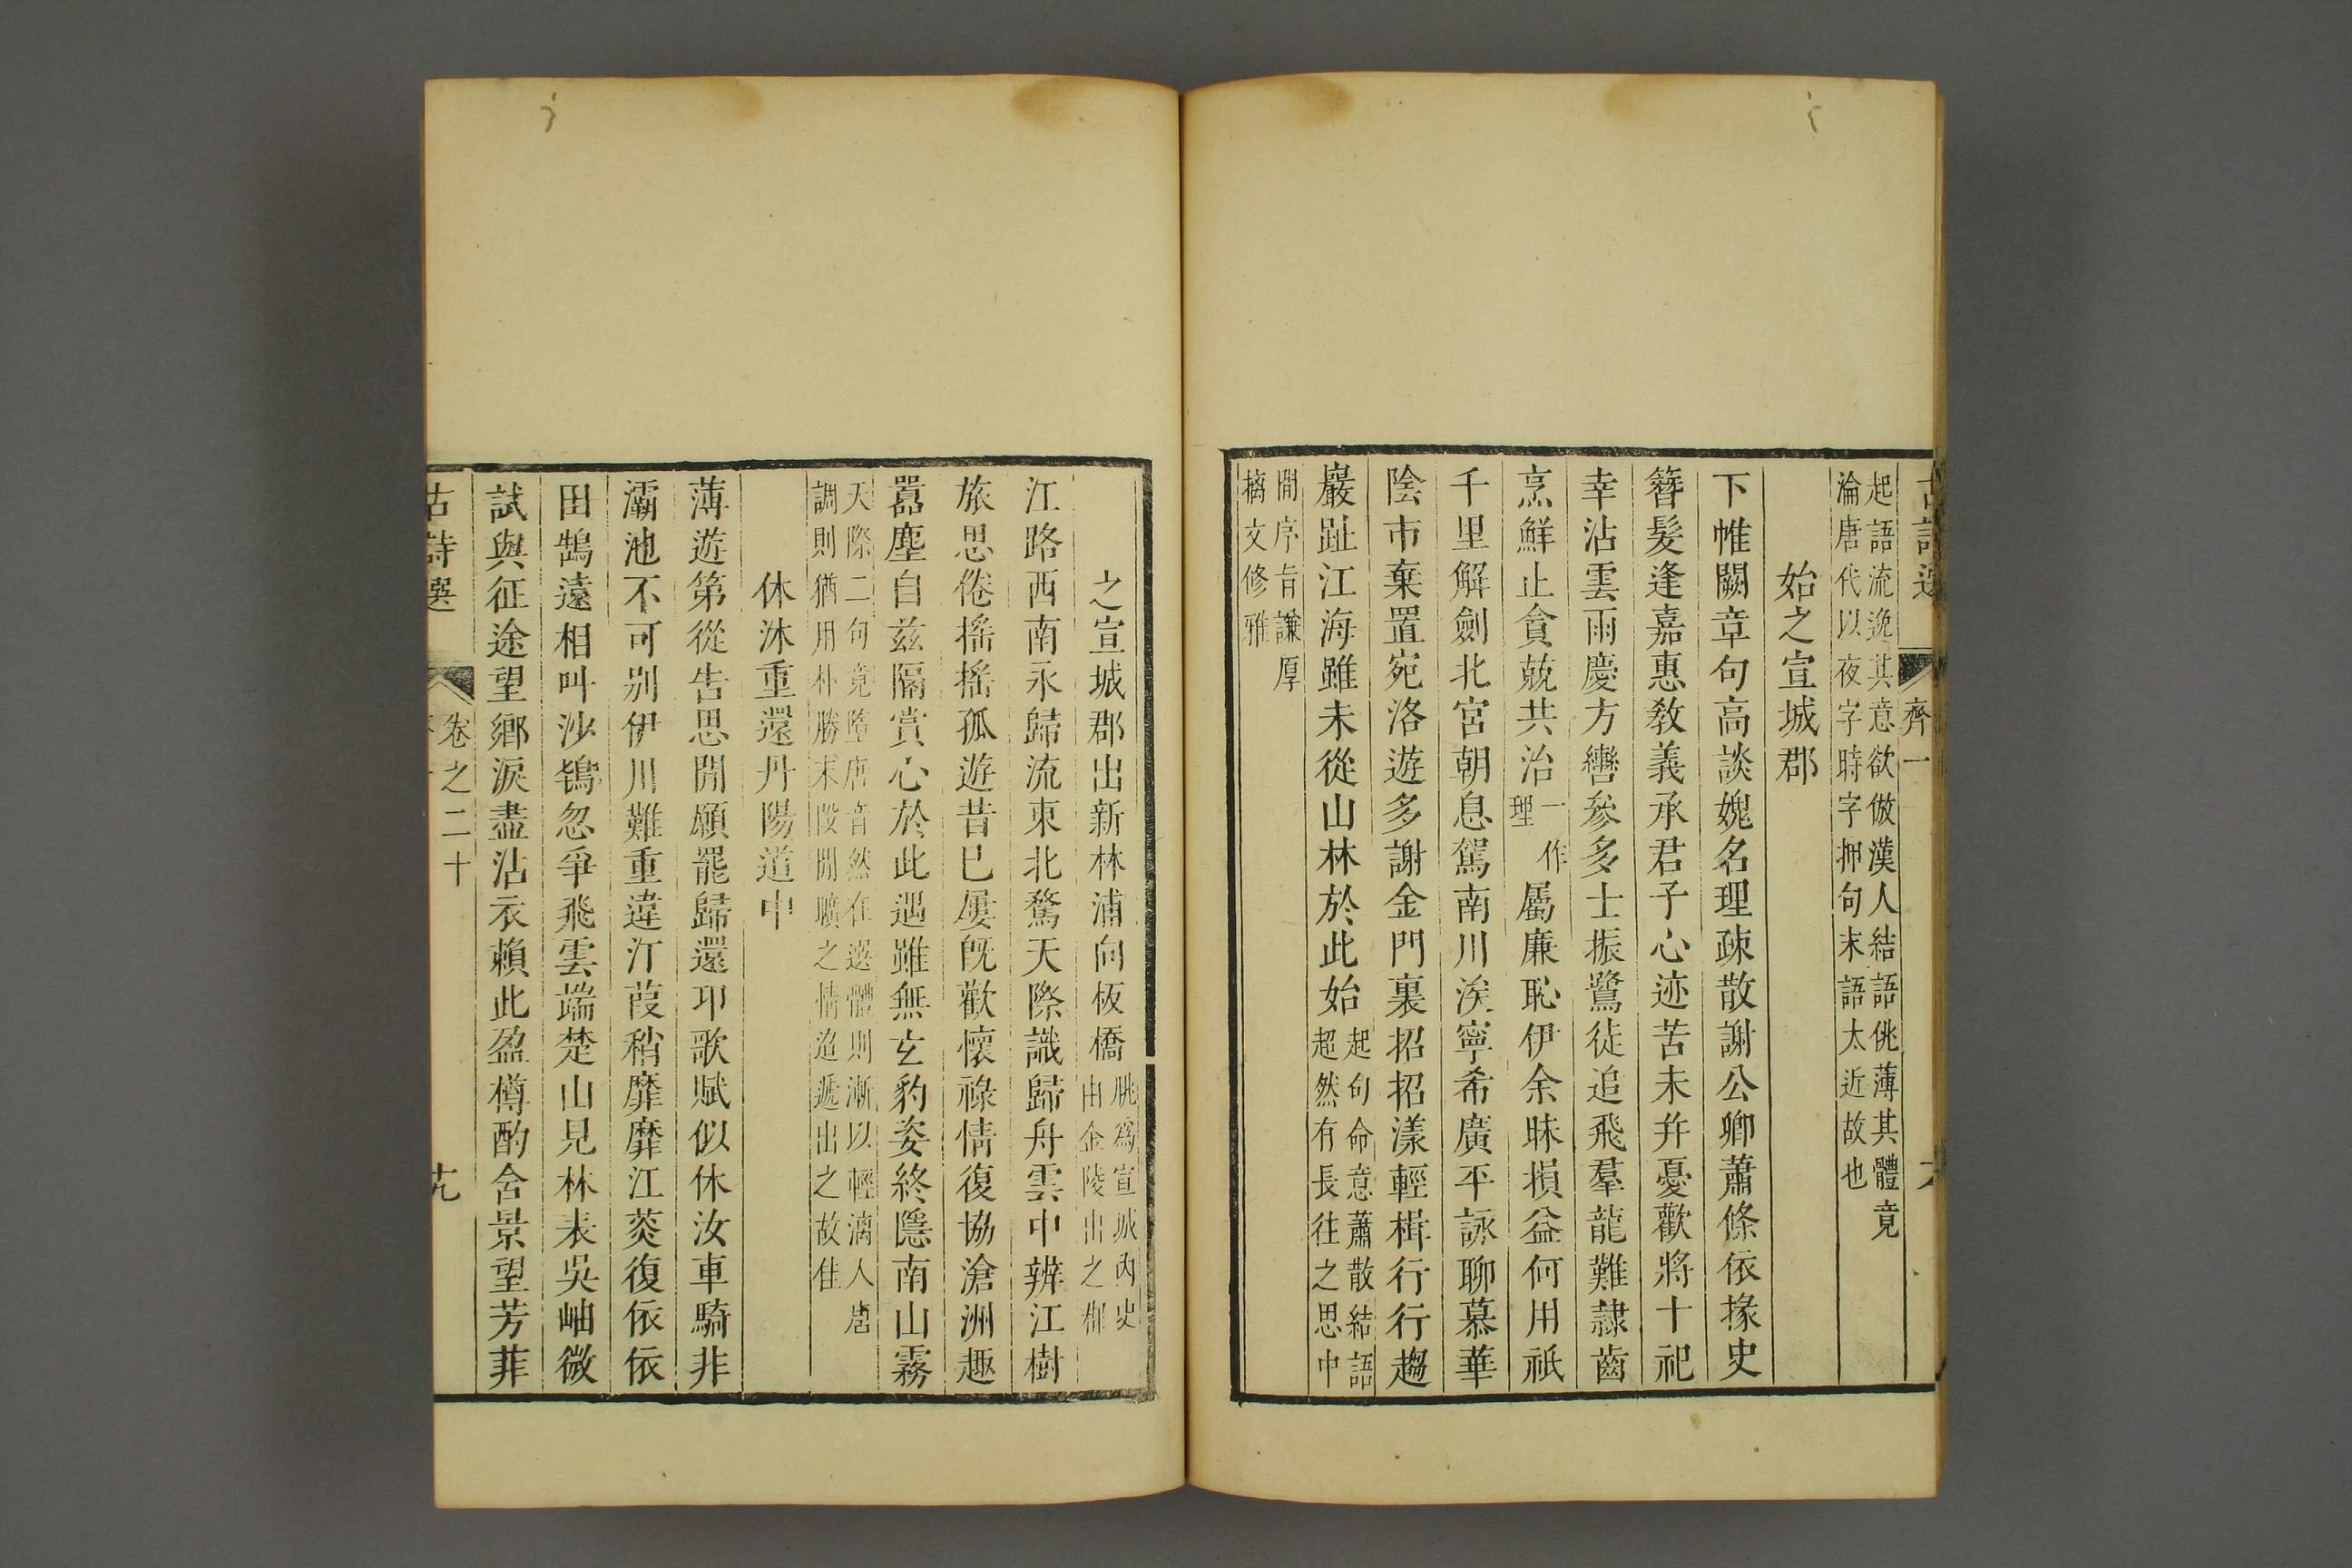 起語流逸其意欲倣漢人結語佻薄其體竟
淪唐代以夜字時字押句末語太近故也
始之宣城郡
下帷闕章句高談媿名理疎散謝公卿蕭條依掾史
簪髮逢嘉惠教義承君子心迹苦未幷憂歡將十祀
幸沾雲雨慶方轡參多士振鷺徒追飛羣龍難隷齒
烹鮮止貪競共治一作理屬廉恥伊余昧損益何用祇
千里解劍北宮朝息駕南川涘寧希廣平詠聊慕華
陰市棄置宛洛遊多謝金門裏招招漾輕楫行行趨
巖趾江海雖未從山林於此始起句命意蕭散結語超然有長往之思中
間序旨謙厚
摛文修雅
之宣城郡出新林浦向板橋朓爲宣城內史由金陵出之郡
江路西南永歸流東北騖天際識歸舟雲中辨江樹
旅思倦搖搖孤遊昔已屢旣歡懷祿情復協滄洲趣
囂塵自茲隔賞心於此遇雖無玄豹姿終隱南山霧
天際二句竟墮唐音然在選體則漸以輕漓人唐
調則猶用朴勝末段閒曠之情迢遞出之故佳
休沐重還丹陽道中
薄遊第從告思閒願罷歸還卭歌賦似休汝車騎非
灞池不可别伊川難重違汀葭稍靡靡江菼復依依
田鵠遠相叫沙鴇忽爭飛雲端楚山見林表吳岫微
試與征途望鄉淚盡沾衣賴此盈樽酌含景望芳菲
古詩選 卷之二十